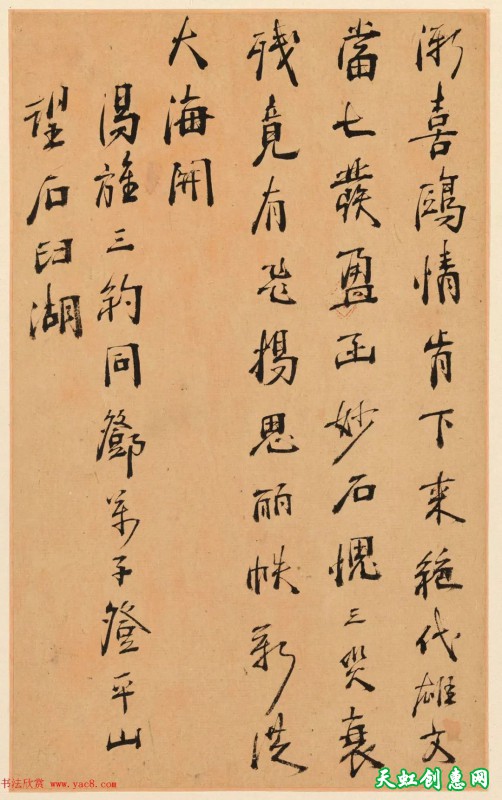 漸喜鷗情肯下来絕代雄文
當七發盈函妙石愧三災衰
殘竟有飛揚思麗帙新從
大海開
湯三約同鄧子登平山
望石臼湖
书法欣赏 www.yac8.com
天虹创惠网